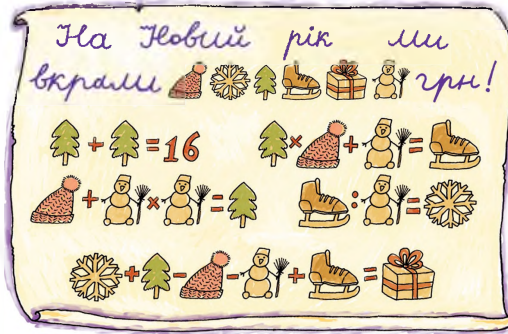 На Новий рік ми
вкрали грн!
+ = 16 × + =
+ × = : =
+ - - + =